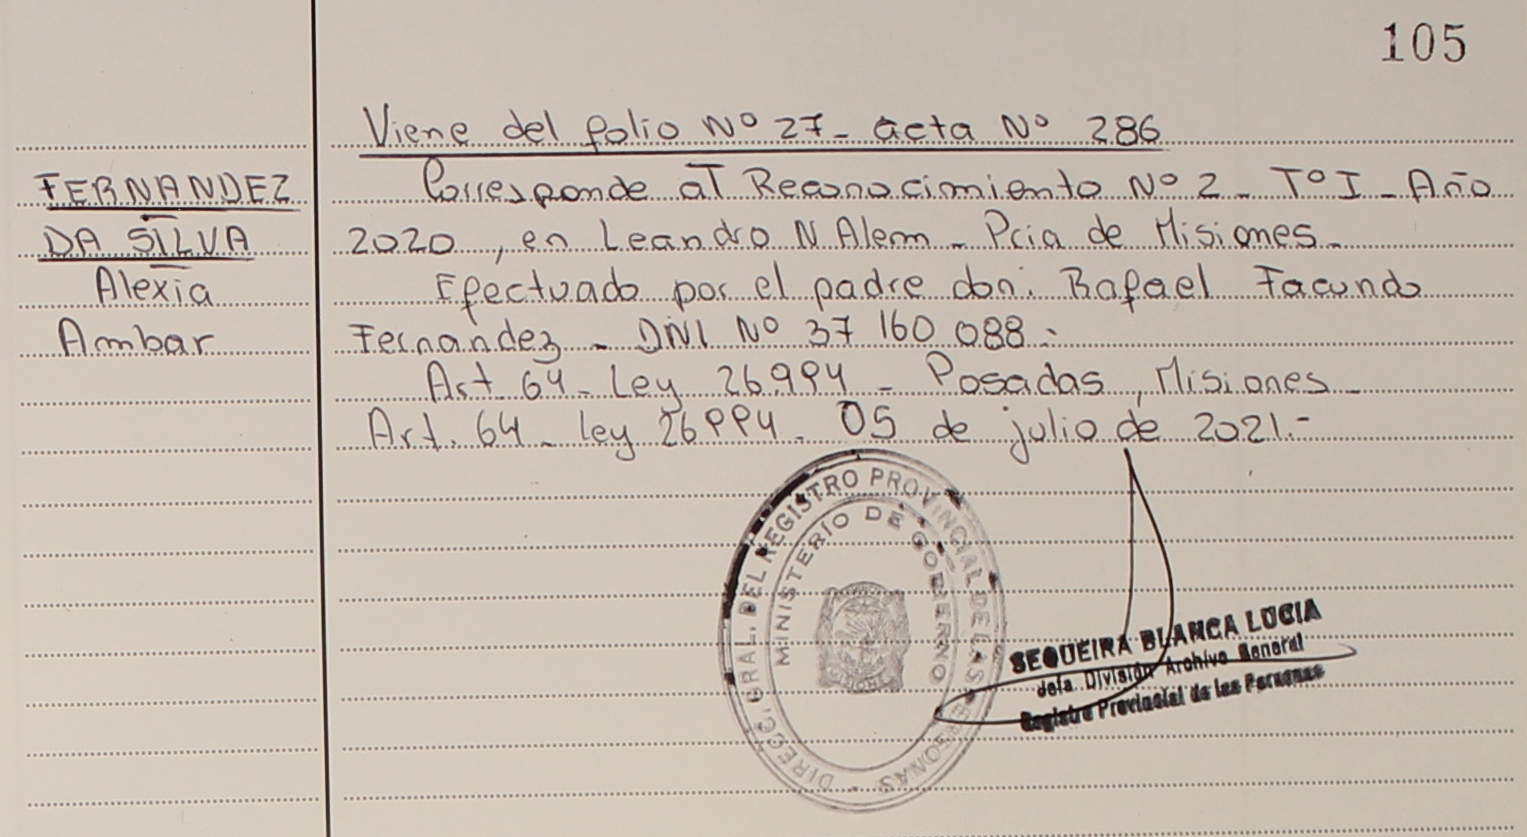 105
Viene del folio Nº 27- acta Nº 286
FERNANDEZ
DA SILVA
Alexia
Ambar
Corresponde al Reconocimiento Nº 2- Tº I- Año
2020, en Leandro N Alem- Pcia de Misiones-
Efectuado por el padre don: Rafael Facundo
Fernandez - DNI Nº 37 160 088.-
Art 64- Ley 26.994 - Posadas, Misiones-
Art. 64- Ley 26994. 05 de julio de 2021.-
DIRECC. GRAL. DEL REGISTRO PROVINCIAL DE LAS PERSONAS
MINISTERIO DE GOBIERNO
MISIONES
SEQUEIRA BLANCA LUCIA
Jefa. División Archivo General
Registro Provincial de las Personas